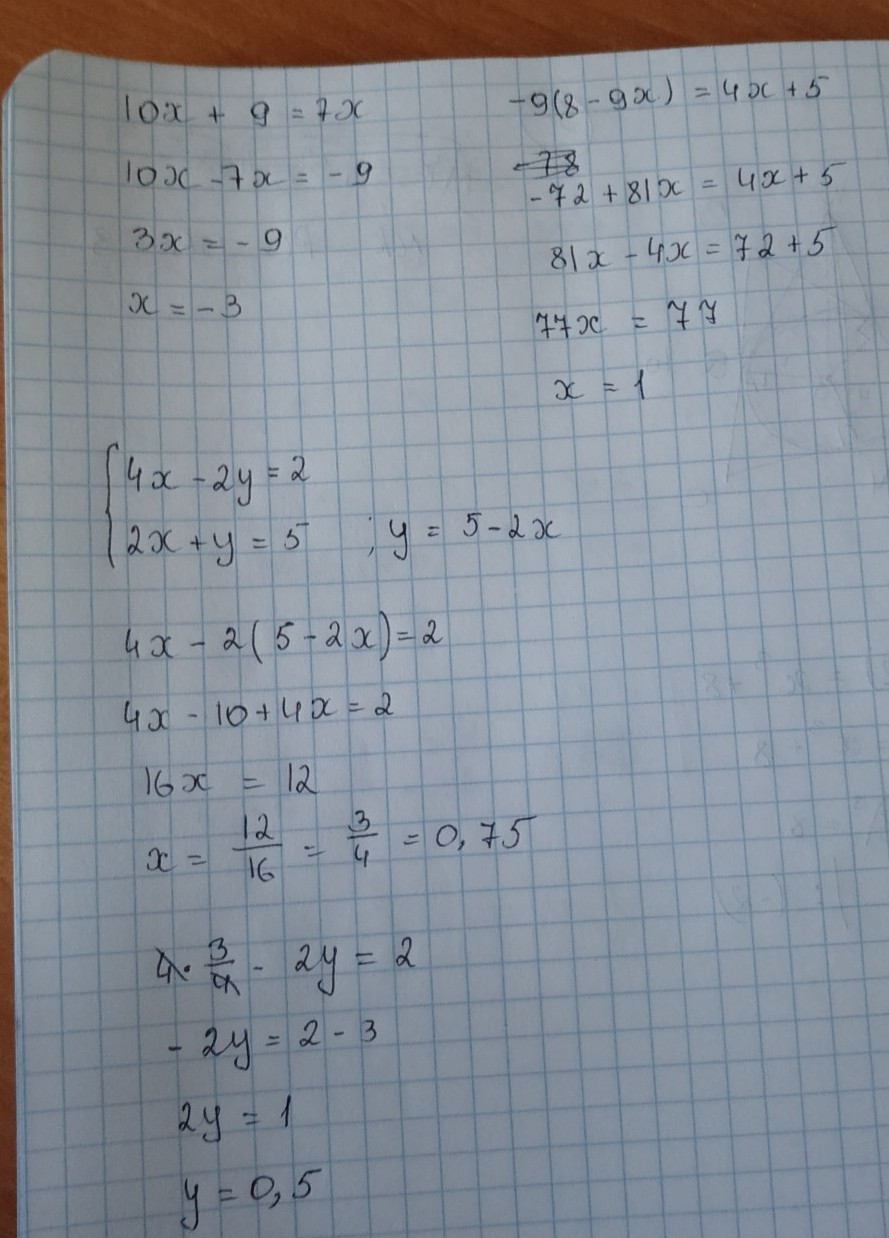 10x + 9 = 7x
10x - 7x = - 9
3x = - 9
x = - 3
-9(8 - 9x) = 4x + 5
-78
- 72 + 81x = 4x + 5
81x - 4x = 72 + 5
77x = 77
x = 1
{ 4x - 2y = 2
2x + y = 5 ; y = 5 - 2x
4x - 2(5 - 2x) = 2
4x - 10 + 4x = 2
16x = 12
x = 12/16 = 3/4 = 0,75
4 · 3/4 - 2y = 2
- 2y = 2 - 3
2y = 1
y = 0,5